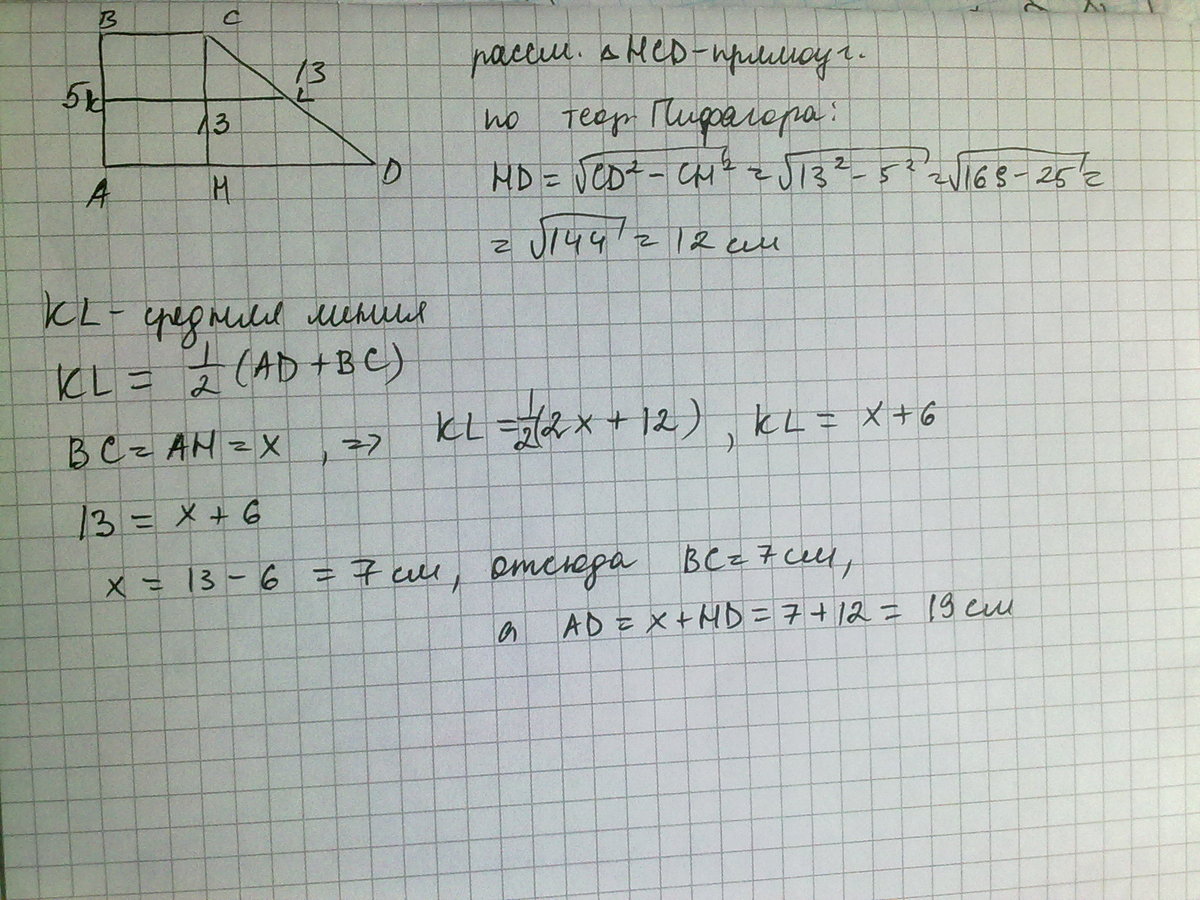 B C
5 K 13 L
13
A H D
рассм. △HCD-прямоуг.
по теор Пифагора:
HD = √CD² - CH² = √13² - 5² = √169 - 25 =
= √144 = 12 см
KL - средняя линия
KL = 1/2 (AD + BC)
BC = AH = x , => KL = 1/2(2x + 12) , KL = x + 6
13 = x + 6
x = 13 - 6 = 7 см, отсюда BC = 7 см,
а AD = x + HD = 7 + 12 = 19 см